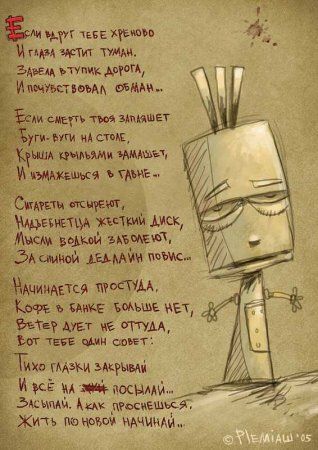 Если вдруг тебе хреново
И глаза застит туман.
Завела в тупик дорога,
И почувствовал обман...
Если смерть твоя запляшет
Буги-вуги на столе,
Крыша крыльями замашет,
И измажешься в гавне...
Сигареты отсыреют,
Надъебнетца жесткий диск,
Мысли водкой заболеют,
За спиной дедлайн повис...
Начинается простуда,
Кофе в банке больше нет,
Ветер дует не оттуда,
Вот тебе один совет:
Тихо глазки закрывай
И всё на посылай...
Засыпай. А как проснешься,
Жить по новой начинай...
© Plemiaш '05